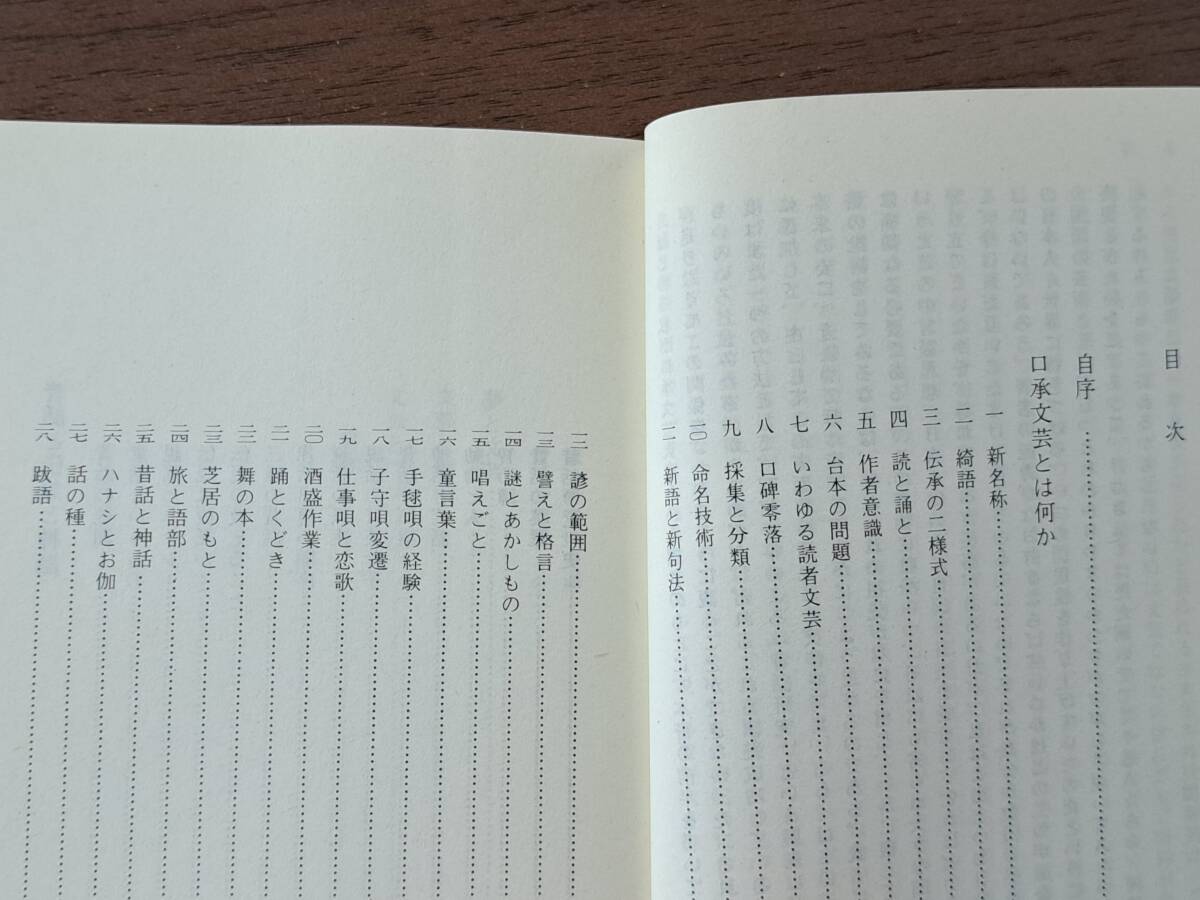 目次
自序
口承文芸とは何か
一 新名称
二 綺語
三 伝承の二様式
四 読と誦と
五 作者意識
六 台本の問題
七 いわゆる読者文芸
八 口碑零落
九 採集と分類
一〇 命名技術
一一 新語と新句法
一二 諺の範囲
一三 譬えと格言
一四 謎とあかしもの
一五 唱えごと
一六 童言葉
一七 手毬唄の経験
一八 子守唄変遷
一九 仕事唄と恋歌
二〇 酒盛作業
二一 踊とくどき
二二 舞の本
二三 芝居のもと
二四 旅と語部
二五 昔話と神話
二六 ハナシとお伽
二七 話の種
二八 跋語